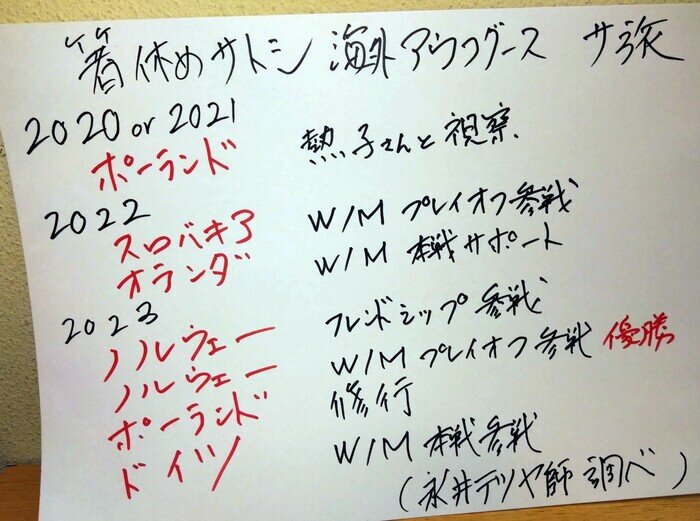 箸休めサトシ 海外アウフグース サ旅
2020 or 2021
ポーランド 熱子さんと視察
2022
スロバキア W/M プレイオフ参戦
オランダ W/M 本戦サポート
2023
ノルウェー フレンドシップ参戦
ノルウェー W/M プレイオフ参戦 優勝
ポーランド 修行
ドイツ W/M 本戦参戦
(永井テツヤ師調べ)